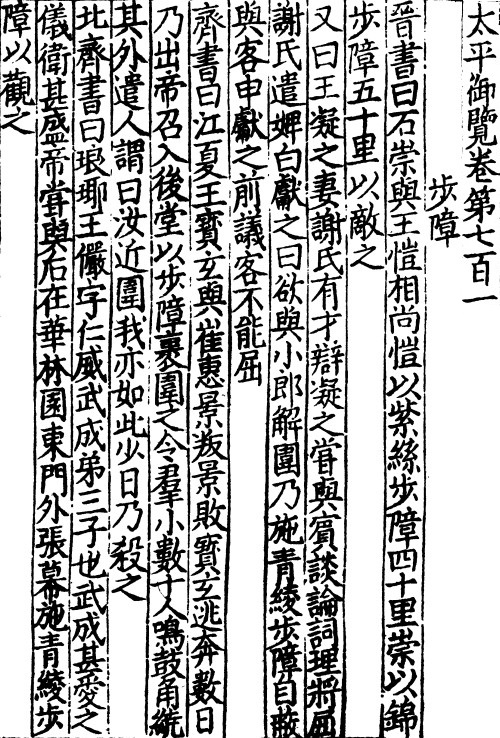 太平御覽卷第七百一
步障
晉書曰石崇與王愷相尚愷以紫絲步障四十里崇以錦
步障五十里以敵之
又曰王凝之妻謝氏有才辯凝之甞與賓談論詞理將屈
謝氏遣婢白獻之曰欲與小郎解圍乃施青綾步障自蔽
與客申獻之前議客不能屈
齊書曰江夏王寶玄與崔惠景叛景敗寶玄逃奔數日
乃出帝召入後堂以步障裹圍之令羣小數十人鳴鼓角繞
其外遣人謂曰汝近圍我亦如此少日乃殺之
北齊書曰琅琊王儼字仁威武成弟三子也武成甚愛之
儀衛甚盛帝甞與后在華林園東門外張幕施青綾步
障以觀之